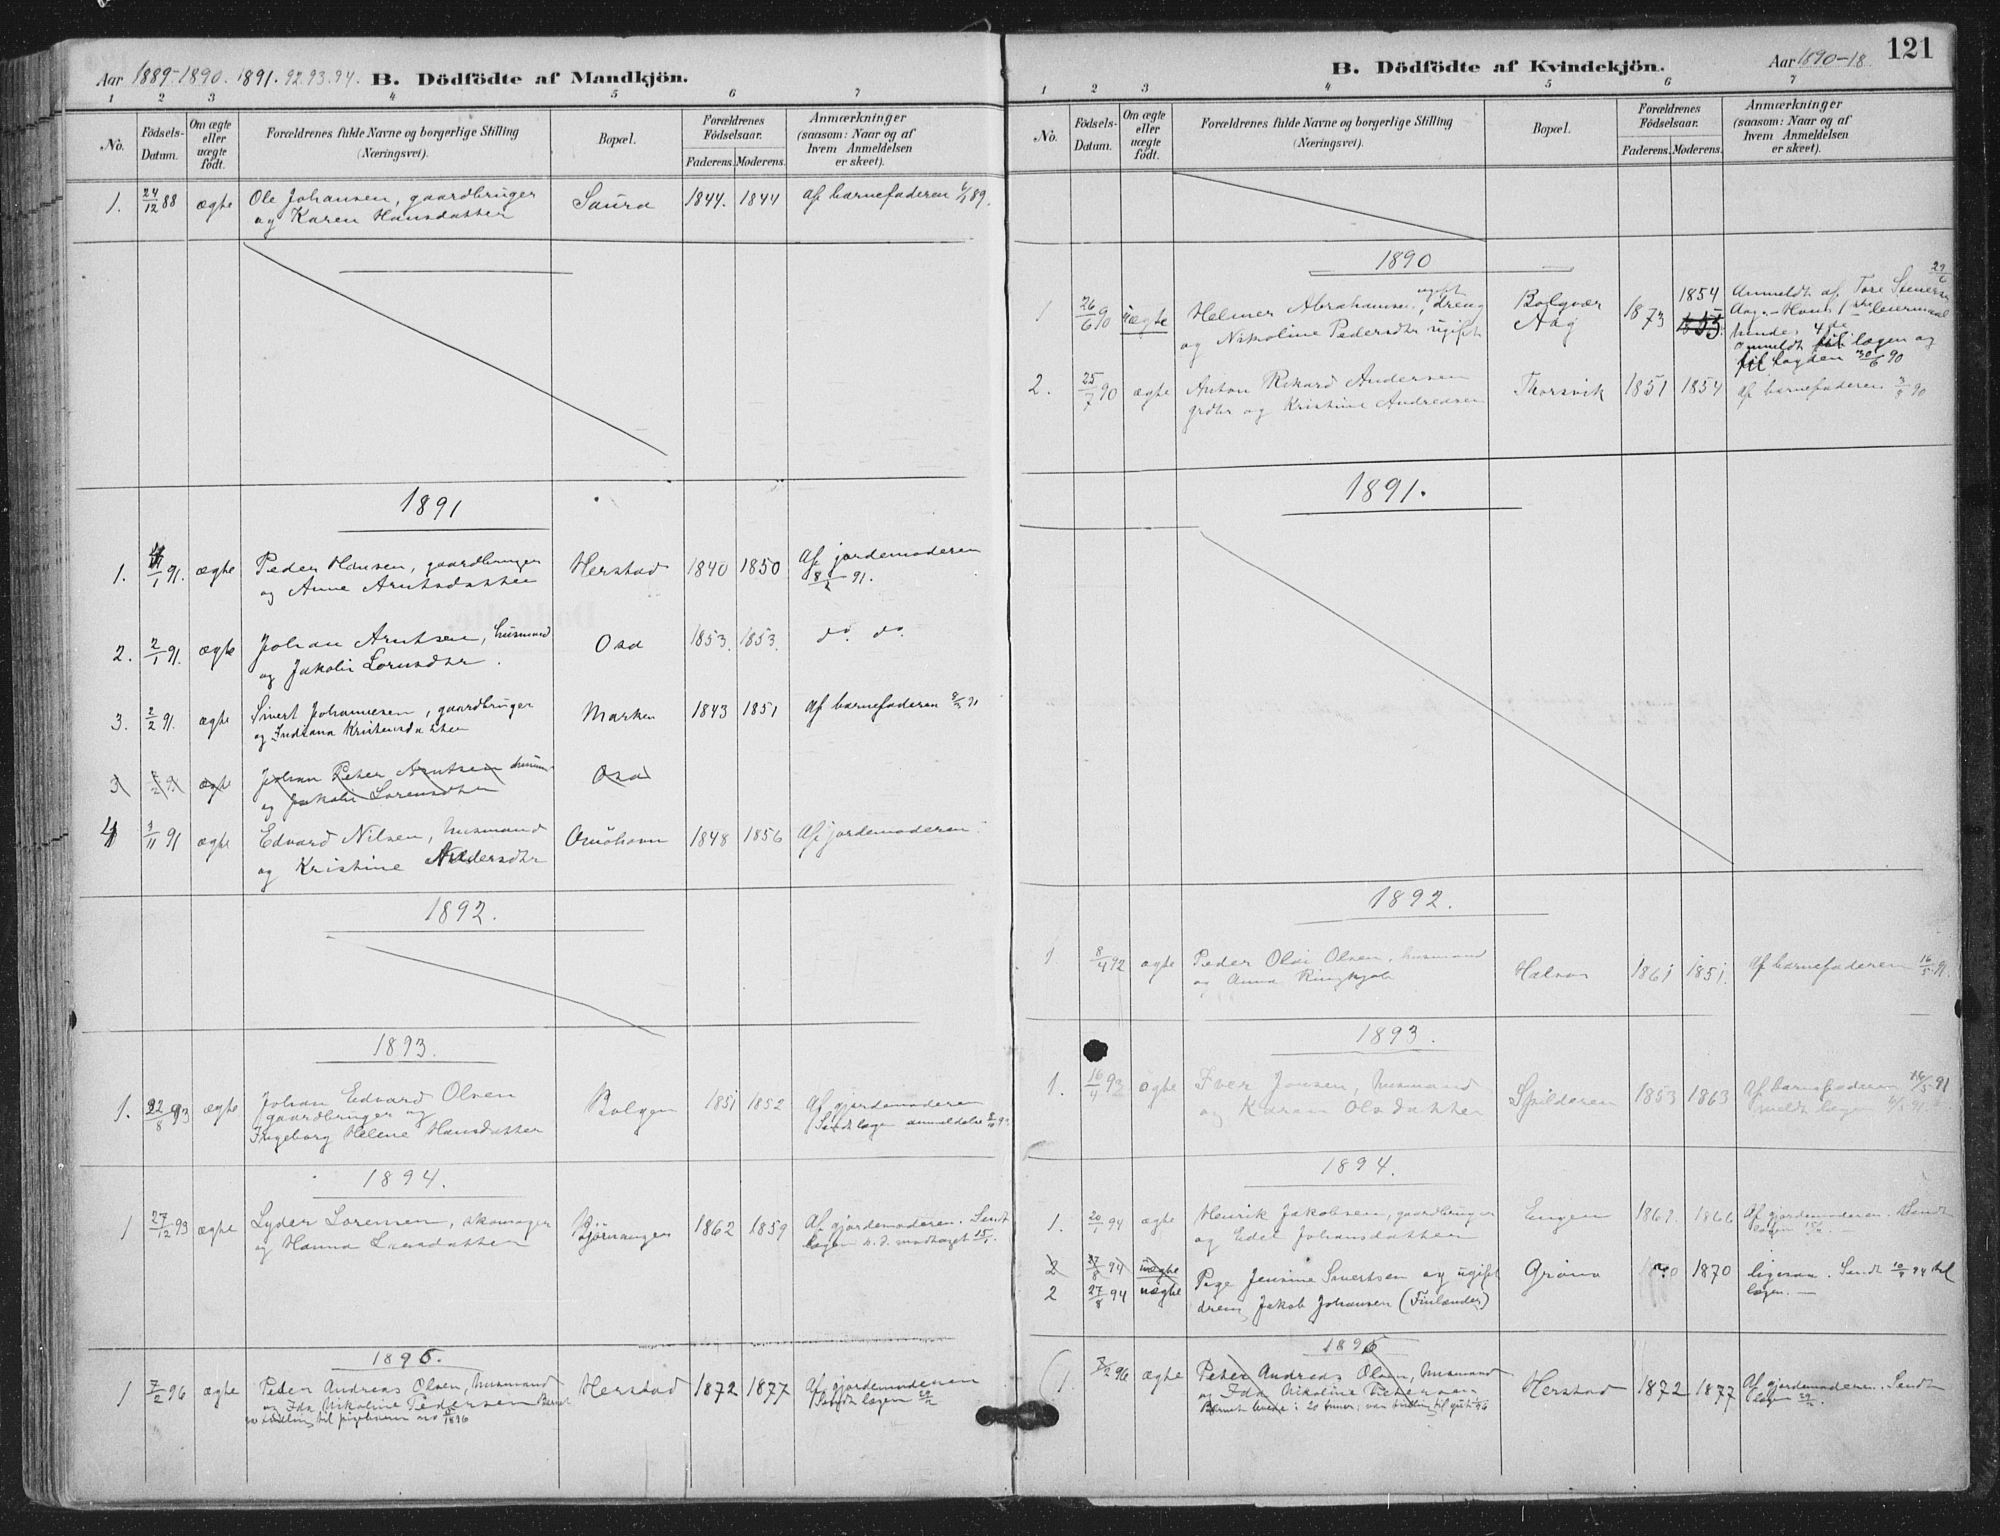 Aar 1889-1890. 1891. 92. 93. 94. B. Dödfödte af Mandkjön.
1 2 3 4 5 6 7
No. Födsels-Datum. Om ægte eller uægte födt. Forældrenes fulde Navne og borgerlige Stilling (Næringsvei). Bopæl. Forældrenes Födselsaar. Faderens. Moderens. Anmærkninger (saasom: Naar og af hvem Anmeldelsen er skeet).
1. 24/12 88 ægte Ole Johansen, gaardbruger Saura 1844. 1844 af barnefaderen 6/1 89.
og Karen Hansdatter
1891
1. /1 91. ægte Peder Hansen, gaardbruger Herstad 1840 1850 Af jordemoderen
og Anne Arntsdatter 8/2 91.
2. 2/1 91. ægte Johan Arntsen, husmand Osa 1853. 1853. do. do.
og Jakobi Lornsdtr.
3. 2/2 91. ægte Sivert Johannesen, gaardbruger Marken 1843 1851 af barnefaderen 91
og Indiana Kristensdatter
3 2/2 91 ægte Johan Peter Arntsen husm Osa
og Jakobi Lorensdtr
4 3/11 91 ægte Edvard Nilsen, husmand Onöhavn 1848 1856 Af jordemoderen
og Kristine dersdtr
1892.
1893.
1. 22/8 93 ægte Johan Edvard Olsen Bolgen 1851 1852 Af gjordemoderen
gaardbruger og Sendt lægen anmeldelse
Ingeborg Helene Hansdatter
1894.
1 27/12 93 ægte Lyder Lorensen, skomager Björnangen 1862 1859 Af gjordemoderen. Sendt
og Hanna Larsdatter lægen n. d. modtaget 15/1.
1896.
1 7/2 96 ægte Peder Andreas Olsen, husmand Herstad 1872 1877 Af gjordemoderen
og Ida Nikoline Pedersen Barnet Sendt lægen 29/2
1896
121
Aar 1890-18
B. Dödfödte af Kvindekjön.
1 2 3 4 5 6 7
No. Födsels-Datum. Om ægte eller uægte födt. Forældrenes fulde Navne og borgerlige Stilling (Næringsvei). Bopæl. Forældrenes Födselsaar. Faderens. Moderens. Anmærkninger (saasom: Naar og af hvem Anmeldelsen er skeet).
1890
1 26/6 90 uægte Helmer Abrahamsen, ugift dreng Bolgvær 1873 1854 Anmeldt af Tore Sivertsen 29/6
og Nikoline Pedersdtr ugift Aag 1853 Aag. - Hans 1ste leiermaal
hendes 4de
anmeldt til lægen og
til Lagden 30/6 90
2. 25/7 90 ægte Anton Rikard Andersen Thorsvik 1851 1854 af barnefaderen 90
grdbr og Kristine Andreasen
1891.
1892.
1. 8/4 92 ægte Peder Olai Olsen, husmand Halvos 1861 1851. Af barnefaderen 16/5 91.
og Anna Ringkjöb
1893.
1. 16/4 93 ægte Iver Jonsen, husmand Spilderen 1853 1863 Af barnefaderen 14/5 91
og Karen Olsdatter meldt lægen
1894.
1. 20/1 94 ægte Henrik Jakobsen, gaardbruger Engen 1867. 1866 Af gjordemoderen. Sendt
og Edel Johansdatter lægen
2 27/8 94 uægte Pige Jensine Sivertsen og ugift Gröno 1870 ligesaa. Sendt 10/9 94 til
2 27/8 94 uægte dreng Jakob Johansen (Finlænder) lægen. -
1896
1 7/2 96 ægte Peter Andreas Olsen, husmand Herstad 1872 1877 Af gjordemoderen. Sendt
og Ida Nikoline lægen 29/2.
Barnet levede i 20 timer,